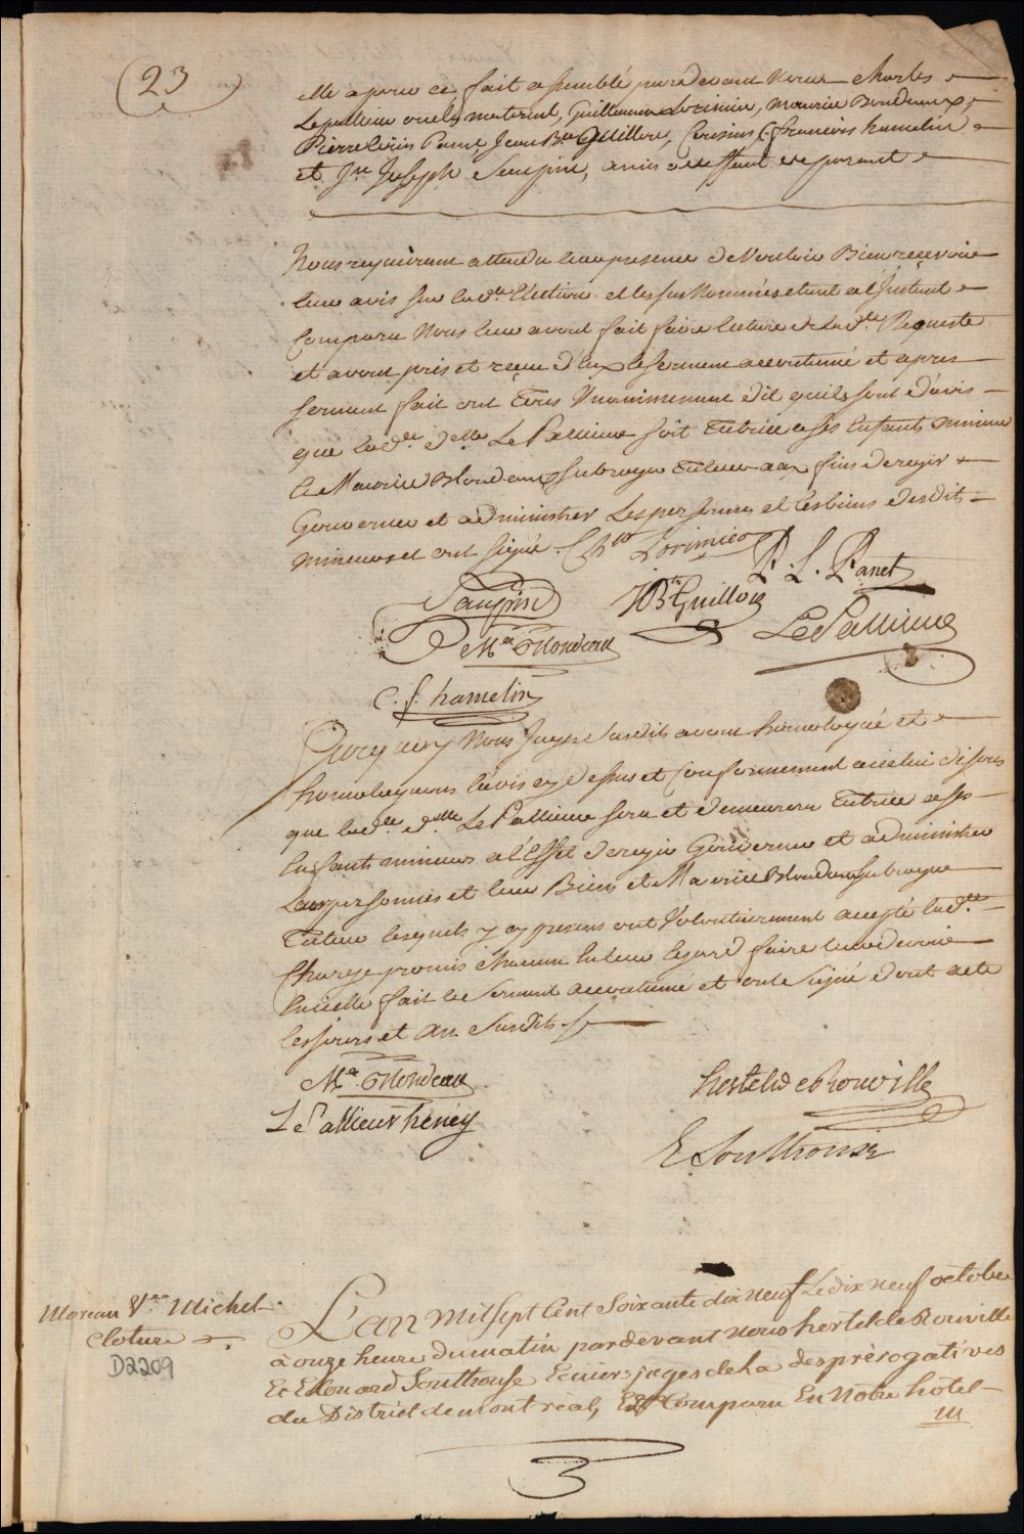 (23)
elle a par ce fait assemblé pardevant Nous Charles
Lepallieur oncle maternel, Guillaume Lorimier, Maurice Blondeaux,
Pierre Louis Panet Jean Bte Guillon, Cousins C. françois hamelin
et Jn Joseph Saupin, amis a deffaut de parent
Nous requerant attendu leur presence de Vouloir Bien recevoir
leur avis sur lade. Election et les sus Nommés etant a l'Instant
Comparu Nous leur avons fait faire lecture de lade. Requeste
et avons pris et reçue d'Eux le serment accoutumé et apres
serment fait ont Tous Unanimement dit quils sont d'avis
que lade. delle Le Pallieur soit Tutrice a ses Enfants mineurs
& Maurice Blondeaux subrogé Tuteur aux fins de regir
Gouverner et administrer les personnes et les biens desdits
mineurs et ont signé. Lorimier P. L. Panet
Saupin JBte Guillon LePallieur
Mce Blondeau
C. f. hamelin
Surquoy Nous Juges Susdits avons homologué et
homologuons l'avis cy dessus et Conformement a icelui disons
que lade. delle Le Pallieur sera et demeurera Tutrice a ses
Enfants mineurs a l'Effet de regir Gouverner et administrer
Leurs personnes et leur Biens et Maurice Blondeau subrogué
Tuteur lesquels y cy presens ont Volontairement accepté lade.
Charge promis chacun En leur Egard faire leur devoir
En icelle fait le serment accoutumé et ont Signé dont acte
les jours et An Susdits
Mce Blondeau hertel De Rouville
Le Pallieur heney
E Southouse
Moreau Vve Michel
Cloture
D2209
L'an mil sept Cent Soixante dix neuf Le dix neuf octobre
à onze heure du matin pardevant nous hertel de Rouville
Et Edouard Southouse Ecuiers juges de la des prèrogatives
du District de montréal, Est Comparu En Notre hôtel
M